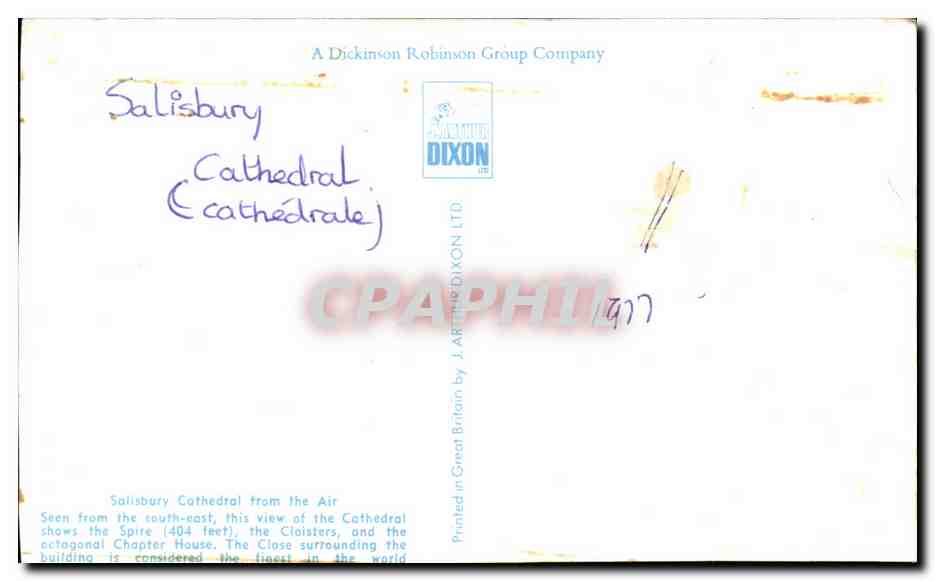 A Dickinson Robinson Group Company
Salisbury
Cathedral
(cathédrale)
J. ARTHUR
DIXON
LTD
Printed in Great Britain by J. ARTHUR DIXON LTD.
CPAPHIL
1977
Salisbury Cathedral from the Air
Seen from the south-east, this view of the Cathedral
shows the Spire (404 feet), the Cloisters, and the
octagonal Chapter House. The Close surrounding the
building is considered the finest in the world